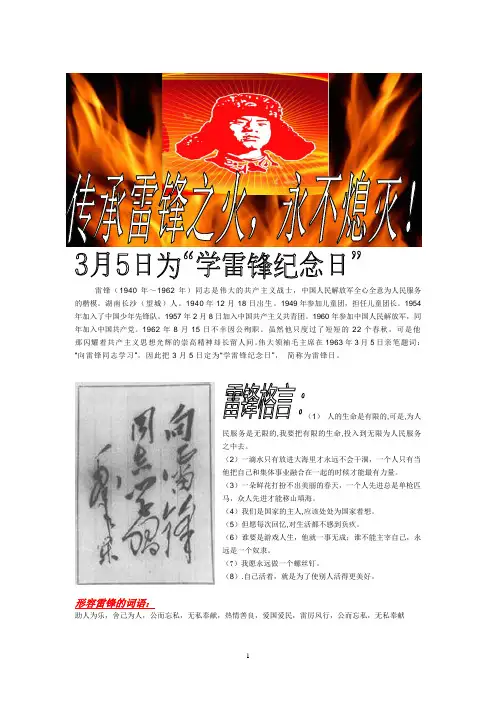 传承雷锋之火，永不熄灭！
3月5日为“学雷锋纪念日”
雷锋（1940 年～1962 年）同志是伟大的共产主义战士，中国人民解放军全心全意为人民服务
的楷模。湖南长沙（望城）人。1940年12月18日出生。1949年参加儿童团，担任儿童团长。1954
年加入了中国少年先锋队。1957年2月8日加入中国共产主义共青团。1960年参加中国人民解放军。同
年加入中国共产党。1962年8月15日不幸因公殉职。虽然他只度过了短短的22个春秋，可是他
那闪耀着共产主义思想光辉的崇高精神却长留人间。伟大领袖毛主席在1963年3月5日亲笔题词：
“向雷锋同志学习”。因此把3月5日定为“学雷锋纪念日”， 简称为雷锋日。
向雷锋
同志学习
毛泽东
雷锋格言：
（1） 人的生命是有限的,可是,为人
民服务是无限的,我要把有限的生命,投入到无限为人民服务
之中去。
（2）一滴水只有放进大海里才永远不会干涸，一个人只有当
他把自己和集体事业融合在一起的时候才能最有力量。
（3）一朵鲜花打扮不出美丽的春天，一个人先进总是单枪匹
马，众人先进才能移山填海。
（4）我们是国家的主人,应该处处为国家着想。
（5）但愿每次回忆,对生活都不感到负疚。
（6）谁要是游戏人生，他就一事无成；谁不能主宰自己，永
远是一个奴隶。
（7）我愿永远做一个螺丝钉。
（8）.自己活着，就是为了使别人活得更美好。
形容雷锋的词语：
助人为乐，舍己为人，公而忘私，无私奉献，热情善良，爱国爱民，雷厉风行，公而忘私，无私奉献
1